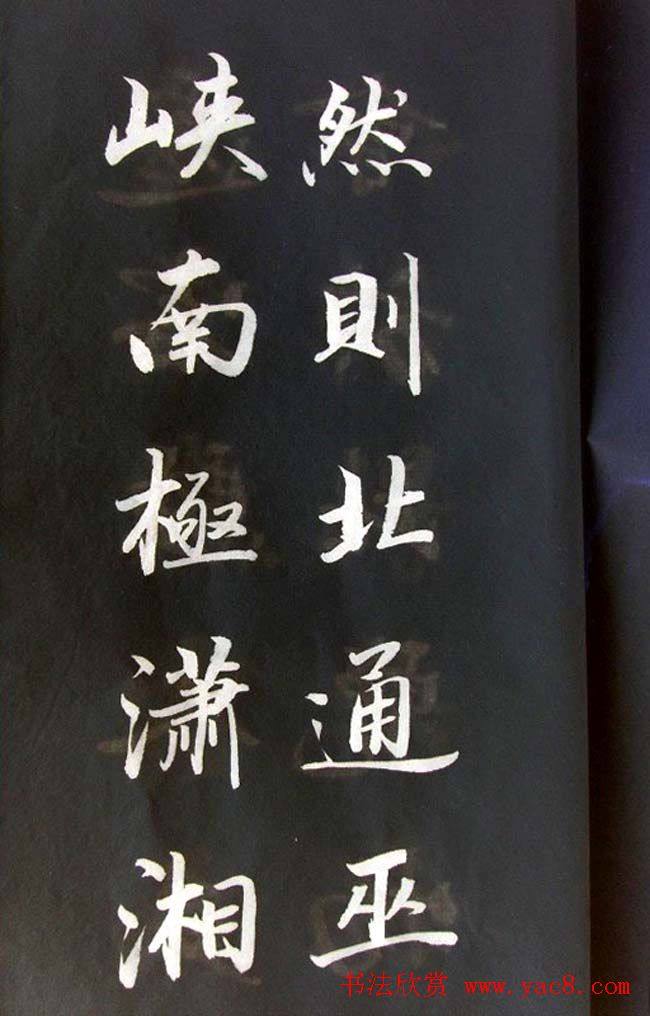 然則北通巫
峡南極潇湘
书法欣赏 www.yac8.com